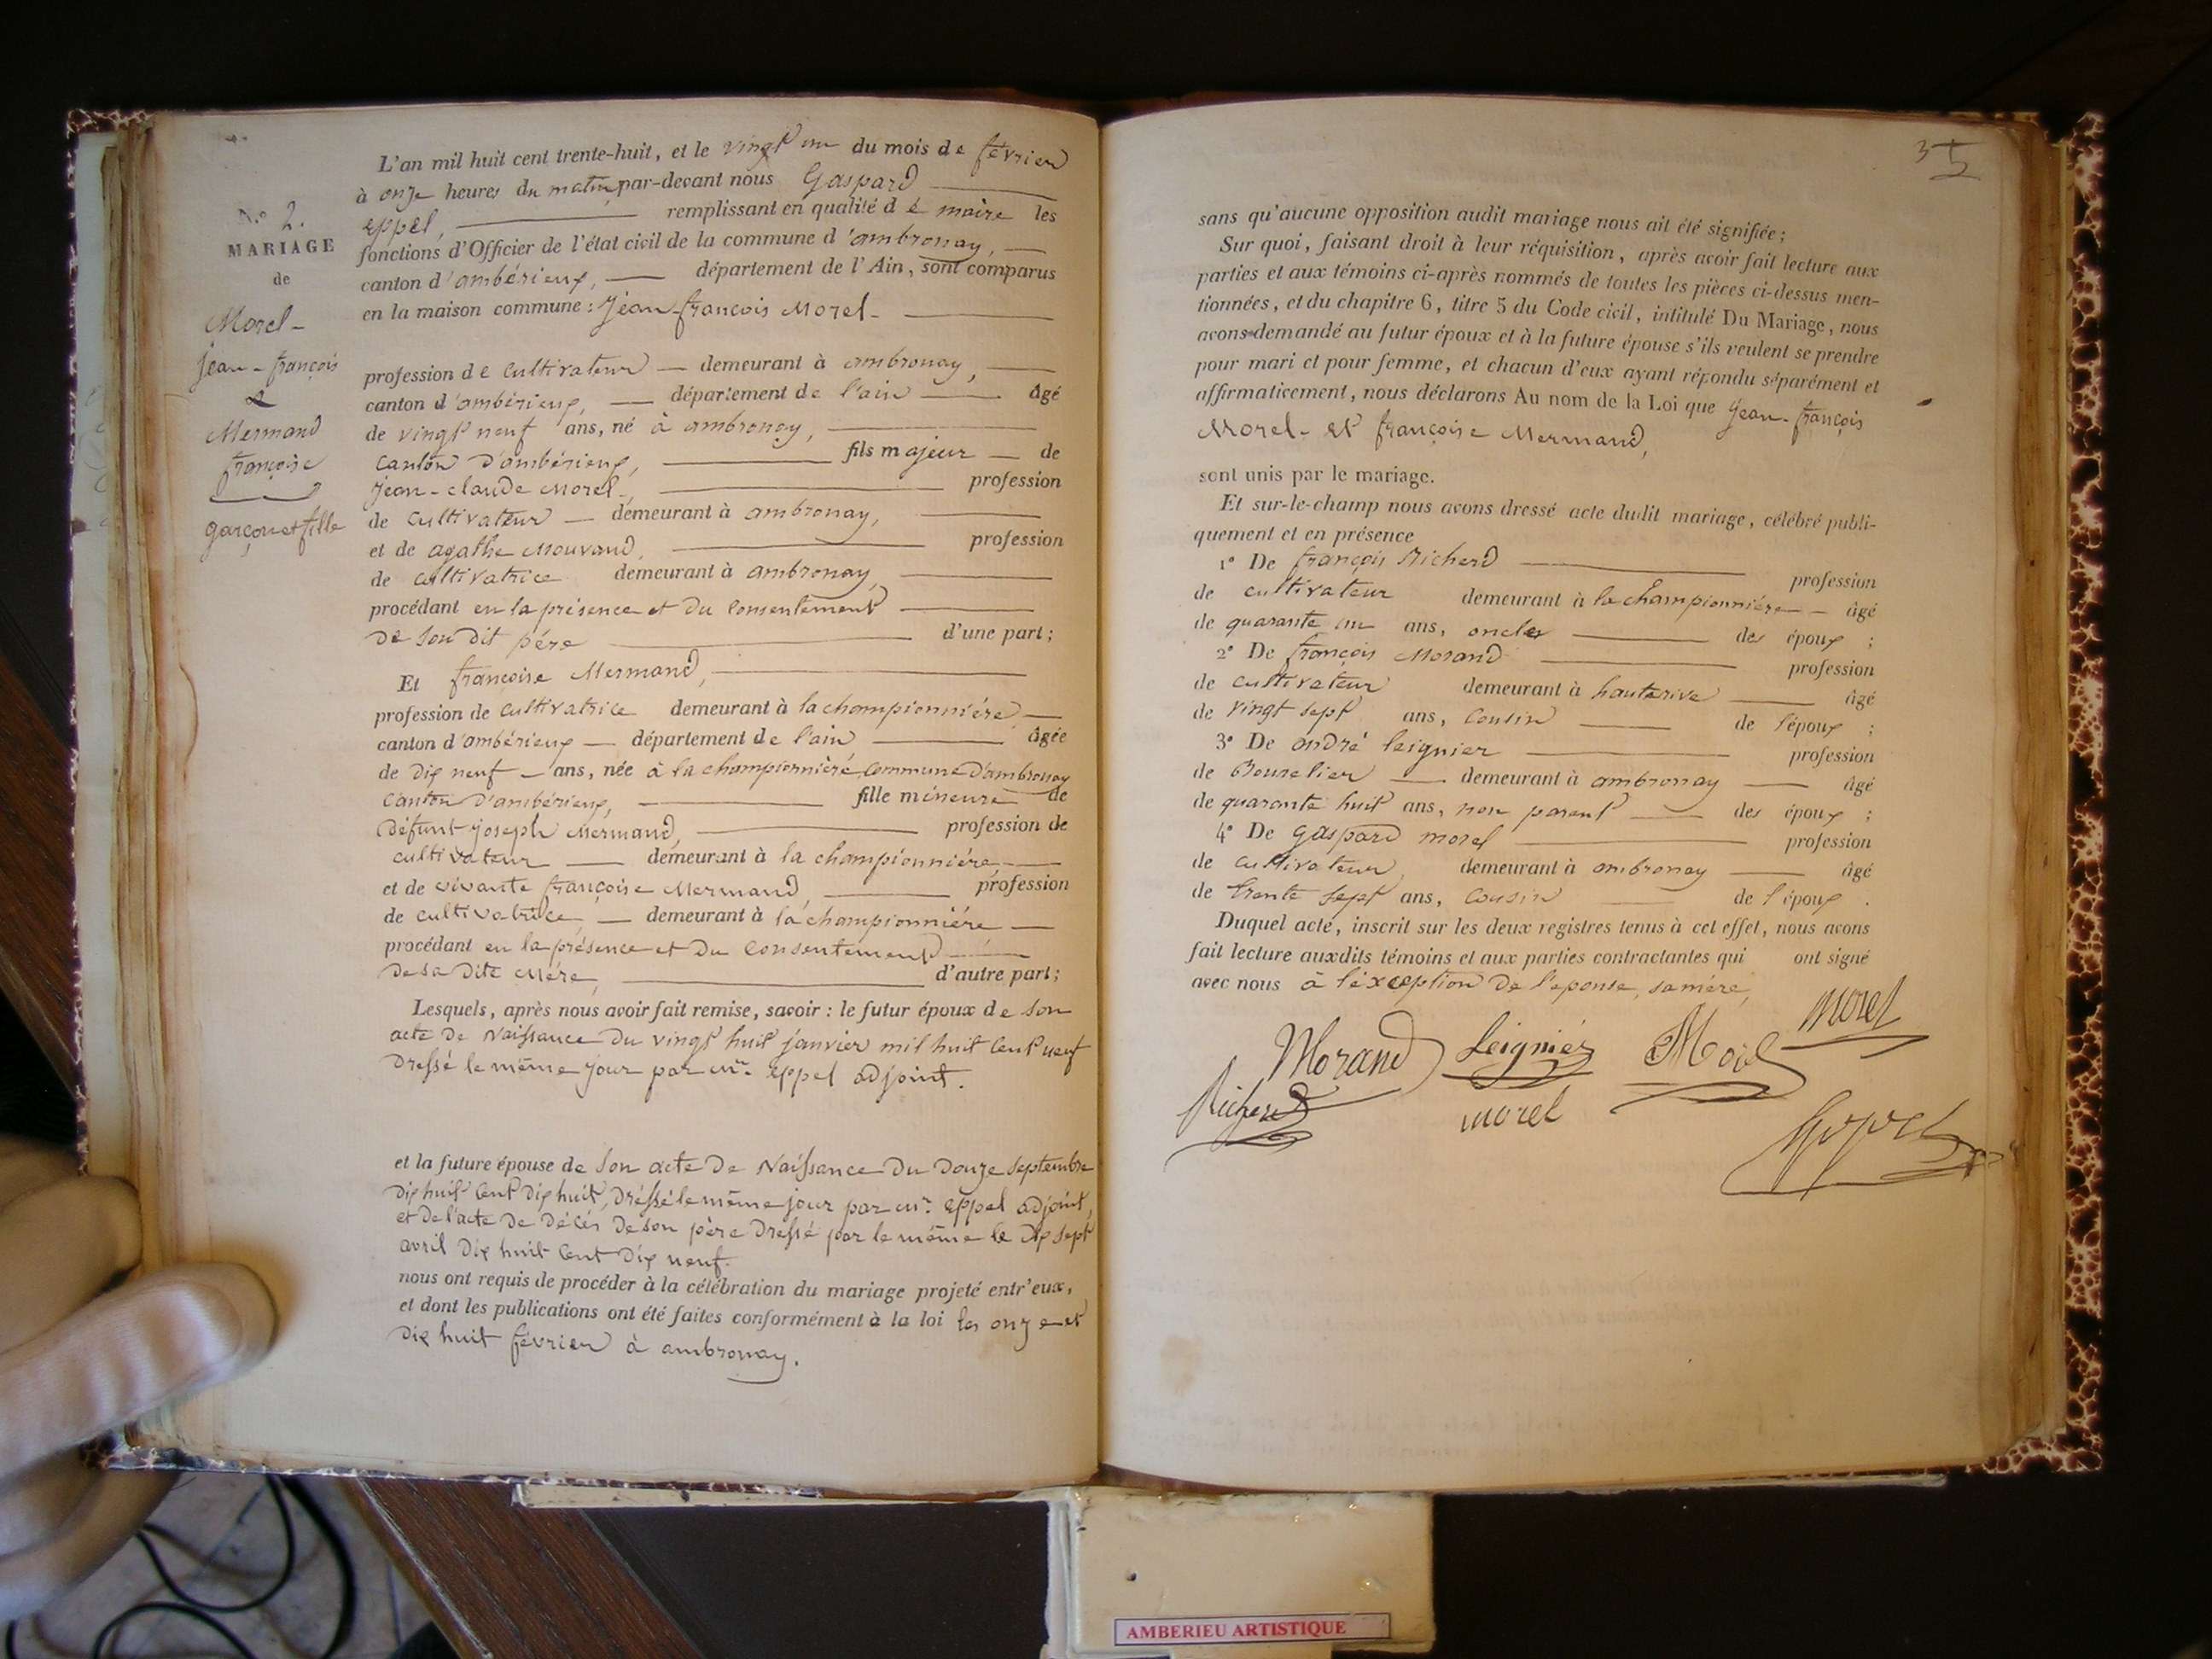 N.° 2.
MARIAGE
de
Morel-
jean-françois
&
Mermand
françoise
garçon et fille
L'an mil huit cent trente-huit, et le vingt un du mois de février
à onze heures du matin, par-devant nous Gaspard
eppel, remplissant en qualité de maire les
fonctions d'Officier de l'état civil de la commune d'ambronay,
canton d'ambérieux, département de l'Ain, sont comparus
en la maison commune : jean-françois Morel-
profession de cultivateur demeurant à ambronay,
canton d'ambérieux, département de l'ain âgé
de vingt neuf ans, né à ambronay,
canton d'ambérieux, fils majeur de
jean-claude Morel-, profession
de cultivateur demeurant à ambronay,
et de agathe Mouvand, profession
de cultivatrice demeurant à ambronay,
procédant en la présence et du consentement
de son dit pére d'une part;
Et françoise Mermand,
profession de cultivatrice demeurant à la championniére
canton d'ambérieux département de l'ain âgée
de dix neuf ans, née à la championniére, commune d'ambronay
canton d'ambérieux, fille mineure de
défunt joseph Mermand, profession de
cultivateur demeurant à la championniére,
et de vivante françoise Mermand, profession
de cultivatrice, demeurant à la championniére,
procédant en la présence et du consentement
de sa dite mére, d'autre part;
Lesquels, après nous avoir fait remise, savoir : le futur époux de son
acte de Naissance du vingt huit janvier mil huit cent neuf
dressé le même jour par mr. eppel adjoint.
et la future épouse de son acte de Naissance du douze septembre
dix huit cent dix huit, dréssé le même jour par mr. eppel adjoint,
et de l'acte de décés de son père dressé par le même le dix sept
avril dix huit cent dix neuf.
nous ont requis de procéder à la célébration du mariage projeté entr'eux,
et dont les publications ont été faites conformément à la loi les onze et
dix huit février à ambronay.
35
sans qu'aucune opposition audit mariage nous ait été signifiée;
Sur quoi, faisant droit à leur réquisition, après avoir fait lecture aux
parties et aux témoins ci-après nommés de toutes les pièces ci-dessus men-
tionnées, et du chapitre 6, titre 5 du Code civil, intitulé Du Mariage, nous
avons demandé au futur époux et à la future épouse s'ils veulent se prendre
pour mari et pour femme, et chacun d'eux ayant répondu séparément et
affirmativement, nous déclarons Au nom de la Loi que jean-françois
Morel- et françoise Mermand,
sont unis par le mariage.
Et sur-le-champ nous avons dressé acte dudit mariage, célébré publi-
quement et en présence
1° De françois Richerd profession
de cultivateur demeurant à la championniére âgé
de quarante un ans, oncle des époux ;
2° De françois Morand profession
de cultivateur demeurant à hauterive âgé
de vingt sept ans, cousin de l'époux ;
3° De andré leignier profession
de Bourelier demeurant à ambronay âgé
de quarante huit ans, non parent des époux ;
4° De gaspard morel profession
de cultivateur, demeurant à ambronay âgé
de trente sept ans, cousin de l'époux .
Duquel acte, inscrit sur les deux registres tenus à cet effet, nous avons
fait lecture auxdits témoins et aux parties contractantes qui ont signé
avec nous à l'éxception de l'epouse, sa mére,
morel
Morand Leignier Morel
Richerd morel
AMBERIEU ARTISTIQUE